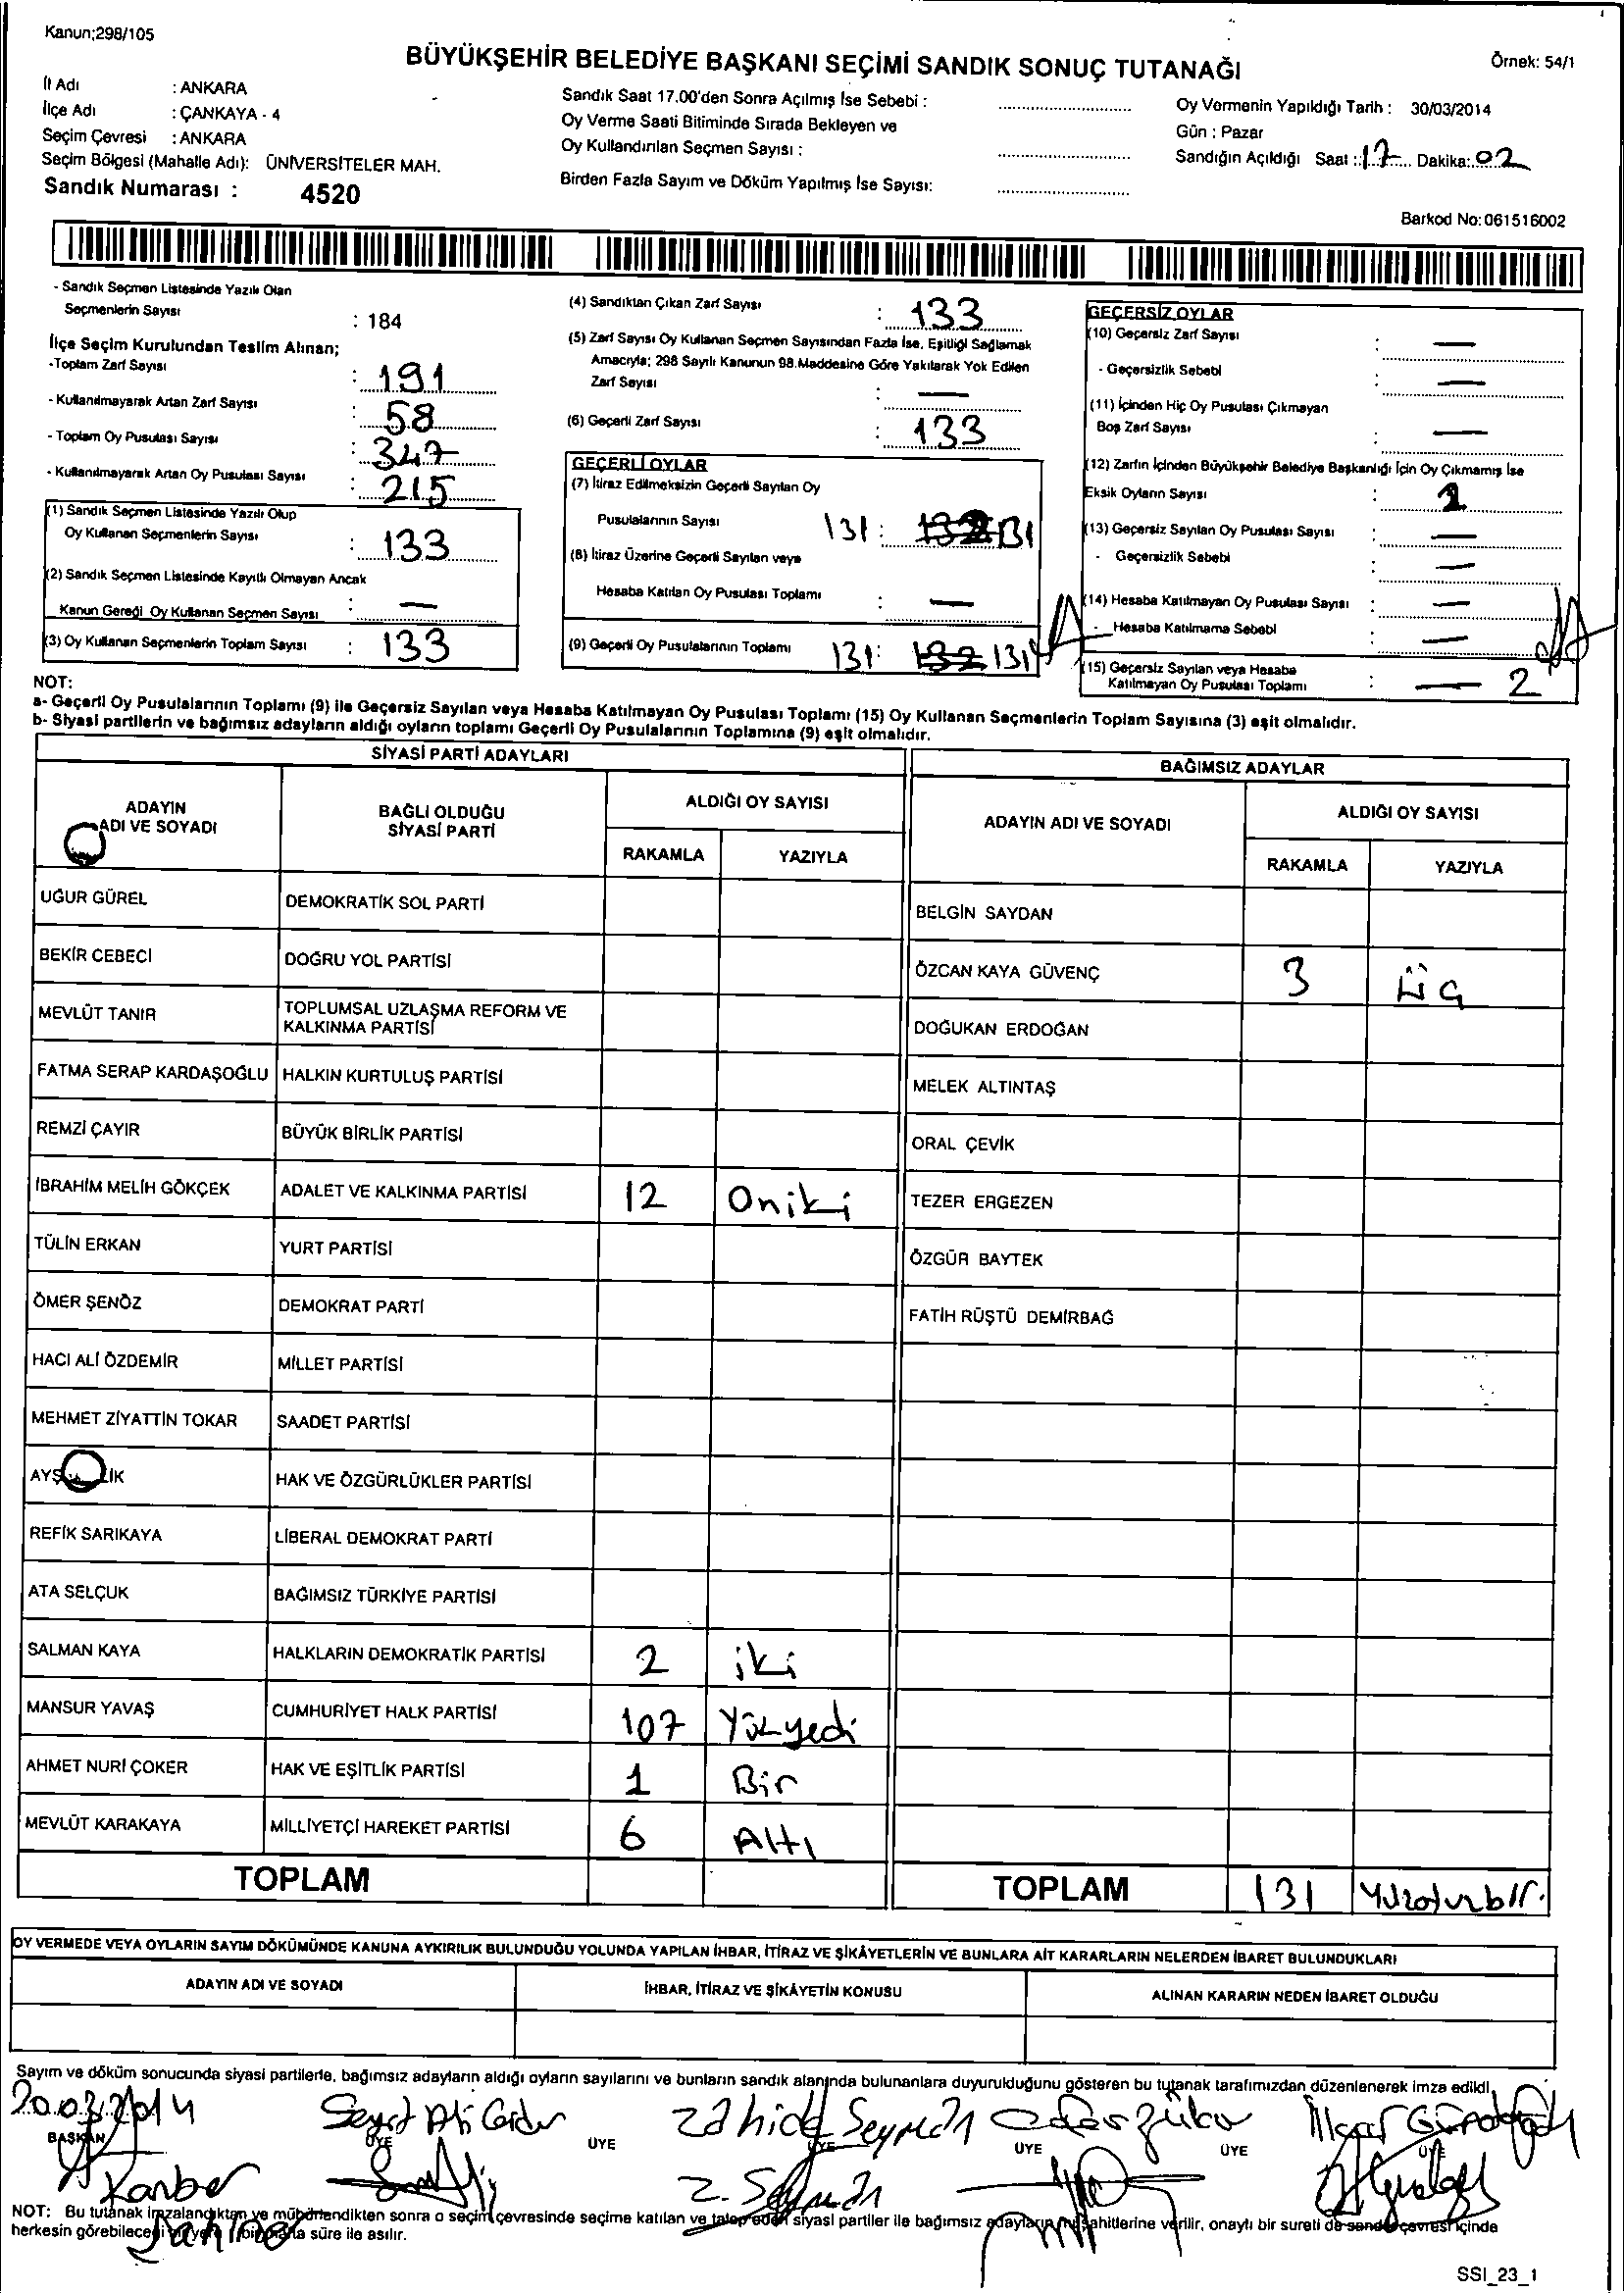 Kanun;298/105
BÜYÜKŞEHİR BELEDİYE BAŞKANI SEÇİMİ SANDIK SONUÇ TUTANAĞI
Örnek: 54/1
İl Adı : ANKARA
İlçe Adı : ÇANKAYA - 4
Seçim Çevresi : ANKARA
Seçim Bölgesi (Mahalle Adı): ÜNİVERSİTELER MAH.
Sandık Numarası : 4520
Sandık Saat 17.00'den Sonra Açılmış İse Sebebi :
Oy Verme Saati Bitiminde Sırada Bekleyen ve
Oy Kullandırılan Seçmen Sayısı :
Birden Fazla Sayım ve Döküm Yapılmış İse Sayısı:
Oy Vermenin Yapıldığı Tarih : 30/03/2014
Gün : Pazar
Sandığın Açıldığı Saat : 17 Dakika: 02
Barkod No: 061516002
- Sandık Seçmen Listesinde Yazılı Olan
Seçmenlerin Sayısı : 184
İlçe Seçim Kurulundan Teslim Alınan;
-Toplam Zarf Sayısı : 191
- Kullanılmayarak Artan Zarf Sayısı : 58
- Toplam Oy Pusulası Sayısı : 347
- Kullanılmayarak Artan Oy Pusulası Sayısı : 215
(1) Sandık Seçmen Listesinde Yazılı Olup
Oy Kullanan Seçmenlerin Sayısı : 133
(2) Sandık Seçmen Listesinde Kayıtlı Olmayan Ancak
Kanun Gereği Oy Kullanan Seçmen Sayısı : —
(3) Oy Kullanan Seçmenlerin Toplam Sayısı : 133
(4) Sandıktan Çıkan Zarf Sayısı : 133
(5) Zarf Sayısı Oy Kullanan Seçmen Sayısından Fazla İse, Eşitliği Sağlamak
Amacıyla; 298 Sayılı Kanunun 98.Maddesine Göre Yakılarak Yok Edilen
Zarf Sayısı : —
(6) Geçerli Zarf Sayısı : 133
GEÇERLİ OYLAR
(7) İtiraz Edilmeksizin Geçerli Sayılan Oy
Pusulalarının Sayısı 131 : 132 131
(8) İtiraz Üzerine Geçerli Sayılan veya
Hesaba Katılan Oy Pusulası Toplamı : —
(9) Geçerli Oy Pusulalarının Toplamı 131 : 132 131
GEÇERSİZ OYLAR
(10) Geçersiz Zarf Sayısı : —
- Geçersizlik Sebebi : —
(11) İçinden Hiç Oy Pusulası Çıkmayan
Boş Zarf Sayısı : —
(12) Zarfın İçinden Büyükşehir Belediye Başkanlığı İçin Oy Çıkmamış İse
Eksik Oyların Sayısı :
(13) Geçersiz Sayılan Oy Pusulası Sayısı : —
- Geçersizlik Sebebi : —
(14) Hesaba Katılmayan Oy Pusulası Sayısı : —
- Hesaba Katılmama Sebebi : —
(15) Geçersiz Sayılan veya Hesaba
Katılmayan Oy Pusulası Toplamı : — 2
NOT:
a- Geçerli Oy Pusulalarının Toplamı (9) ile Geçersiz Sayılan veya Hesaba Katılmayan Oy Pusulası Toplamı (15) Oy Kullanan Seçmenlerin Toplam Sayısına (3) eşit olmalıdır.
b- Siyasi partilerin ve bağımsız adayların aldığı oyların toplamı Geçerli Oy Pusulalarının Toplamına (9) eşit olmalıdır.
SİYASİ PARTİ ADAYLARI
ADAYIN ADI VE SOYADI BAĞLI OLDUĞU SİYASİ PARTİ ALDIĞI OY SAYISI
RAKAMLA YAZIYLA
UĞUR GÜREL DEMOKRATİK SOL PARTİ
BEKİR CEBECİ DOĞRU YOL PARTİSİ
MEVLÜT TANIR TOPLUMSAL UZLAŞMA REFORM VE KALKINMA PARTİSİ
FATMA SERAP KARDAŞOĞLU HALKIN KURTULUŞ PARTİSİ
REMZİ ÇAYIR BÜYÜK BİRLİK PARTİSİ
İBRAHİM MELİH GÖKÇEK ADALET VE KALKINMA PARTİSİ 12 Oniki
TÜLİN ERKAN YURT PARTİSİ
ÖMER ŞENÖZ DEMOKRAT PARTİ
HACI ALİ ÖZDEMİR MİLLET PARTİSİ
MEHMET ZİYATTİN TOKAR SAADET PARTİSİ
HAK VE ÖZGÜRLÜKLER PARTİSİ
REFİK SARIKAYA LİBERAL DEMOKRAT PARTİ
ATA SELÇUK BAĞIMSIZ TÜRKİYE PARTİSİ
SALMAN KAYA HALKLARIN DEMOKRATİK PARTİSİ 2 iki
MANSUR YAVAŞ CUMHURİYET HALK PARTİSİ 107 Yüzyedi
AHMET NURİ ÇOKER HAK VE EŞİTLİK PARTİSİ 1 Bir
MEVLÜT KARAKAYA MİLLİYETÇİ HAREKET PARTİSİ 6 Altı
TOPLAM
BAĞIMSIZ ADAYLAR
ADAYIN ADI VE SOYADI ALDIĞI OY SAYISI
RAKAMLA YAZIYLA
BELGİN SAYDAN
ÖZCAN KAYA GÜVENÇ 3 üç
DOĞUKAN ERDOĞAN
MELEK ALTINTAŞ
ORAL ÇEVİK
TEZER ERGEZEN
ÖZGÜR BAYTEK
FATİH RÜŞTÜ DEMİRBAĞ
TOPLAM 131 Yüzotuzbir.
OY VERMEDE VEYA OYLARIN SAYIM DÖKÜMÜNDE KANUNA AYKIRILIK BULUNDUĞU YOLUNDA YAPILAN İHBAR, İTİRAZ VE ŞİKÂYETLERİN VE BUNLARA AİT KARARLARIN NELERDEN İBARET BULUNDUKLARI
ADAYIN ADI VE SOYADI İHBAR, İTİRAZ VE ŞİKÂYETİN KONUSU ALINAN KARARIN NEDEN İBARET OLDUĞU
Sayım ve döküm sonucunda siyasi partilerle, bağımsız adayların aldığı oyların sayılarını ve bunların sandık alanında bulunanlara duyurulduğunu gösteren bu tutanak tarafımızdan düzenlenerek imza edildi
Zahide Seyman
BAŞKAN ÜYE ÜYE ÜYE ÜYE ÜYE ÜYE
Kanber Z. Seyman
NOT: Bu tutanak imzalandıktan ve mühürlendikten sonra o seçim çevresinde seçime katılan ve talep eden siyasi partiler ile bağımsız adayların müşahitlerine verilir, onaylı bir sureti de sandık çevresi içinde
herkesin görebileceği bir yere bir hafta süre ile asılır.
SSI_23_1